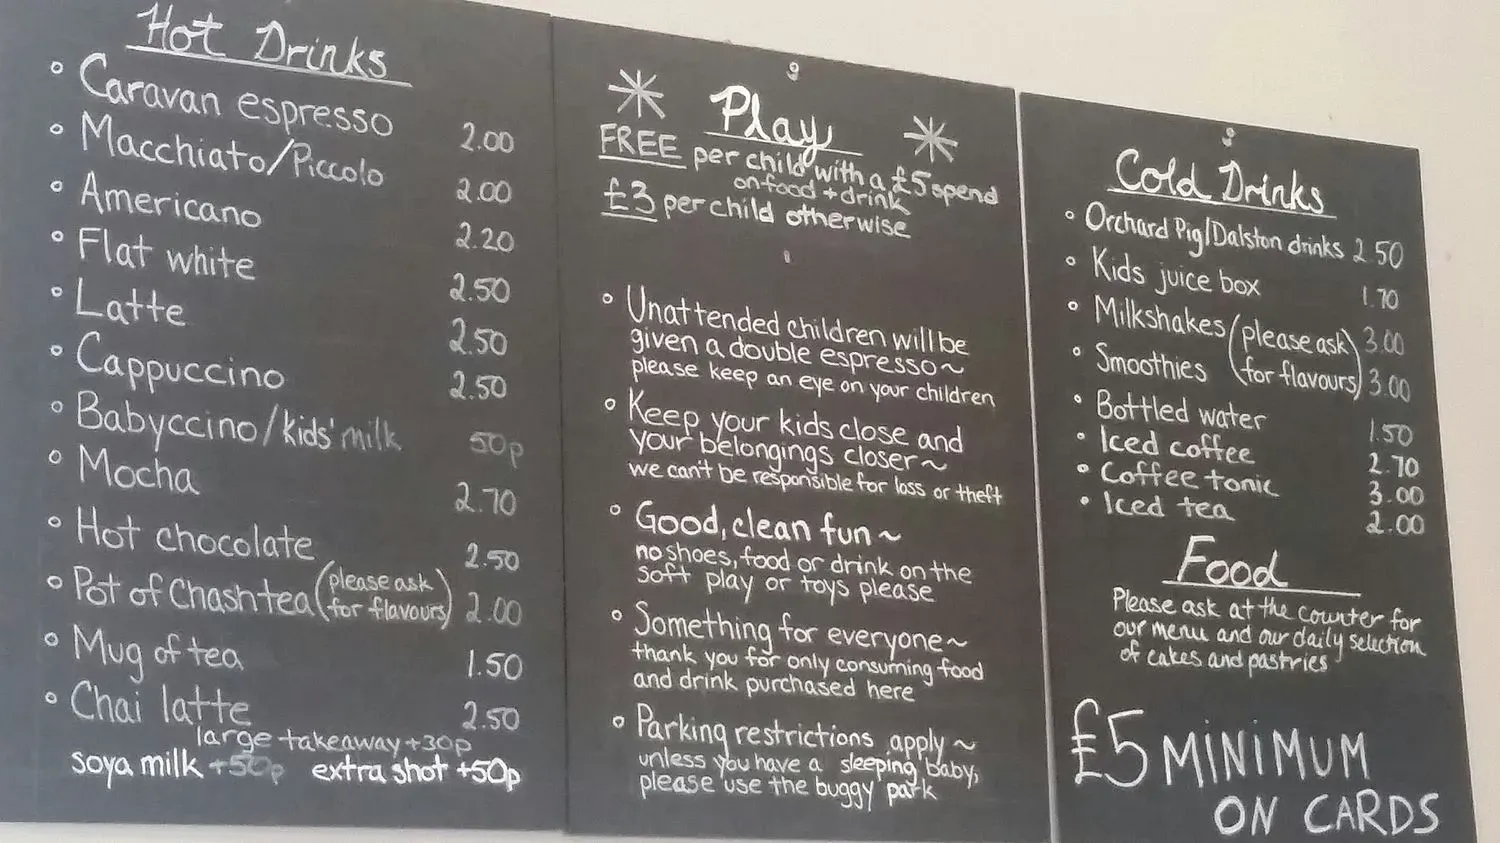 Hot Drinks
° Caravan espresso 2.00
° Macchiato/Piccolo 2.00
° Americano 2.20
° Flat white 2.50
° Latte 2.50
° Cappuccino 2.50
° Babyccino/kids' milk 50p
° Mocha 2.70
° Hot chocolate 2.50
° Pot of Chash tea (please ask for flavours) 2.00
° Mug of tea 1.50
° Chai latte 2.50
large takeaway +30p
soya milk +50p extra shot +50p
Play
FREE per child with a £5 spend
on food + drink
£3 per child otherwise
° Unattended children will be
given a double espresso ~
please keep an eye on your children
° Keep your kids close and
your belongings closer ~
we can't be responsible for loss or theft
° Good, clean fun ~
no shoes, food or drink on the
soft play or toys please
° Something for everyone ~
thank you for only consuming food
and drink purchased here
° Parking restrictions apply ~
unless you have a sleeping baby,
please use the buggy park
Cold Drinks
° Orchard Pig/Dalston drinks 2.50
° Kids juice box 1.70
° Milkshakes (please ask 3.00
° Smoothies for flavours) 3.00
° Bottled water 1.50
° Iced coffee 2.70
° Coffee tonic 3.00
° Iced tea 2.00
Food
Please ask at the counter for
our menu and our daily selection
of cakes and pastries
£5 MINIMUM
ON CARDS